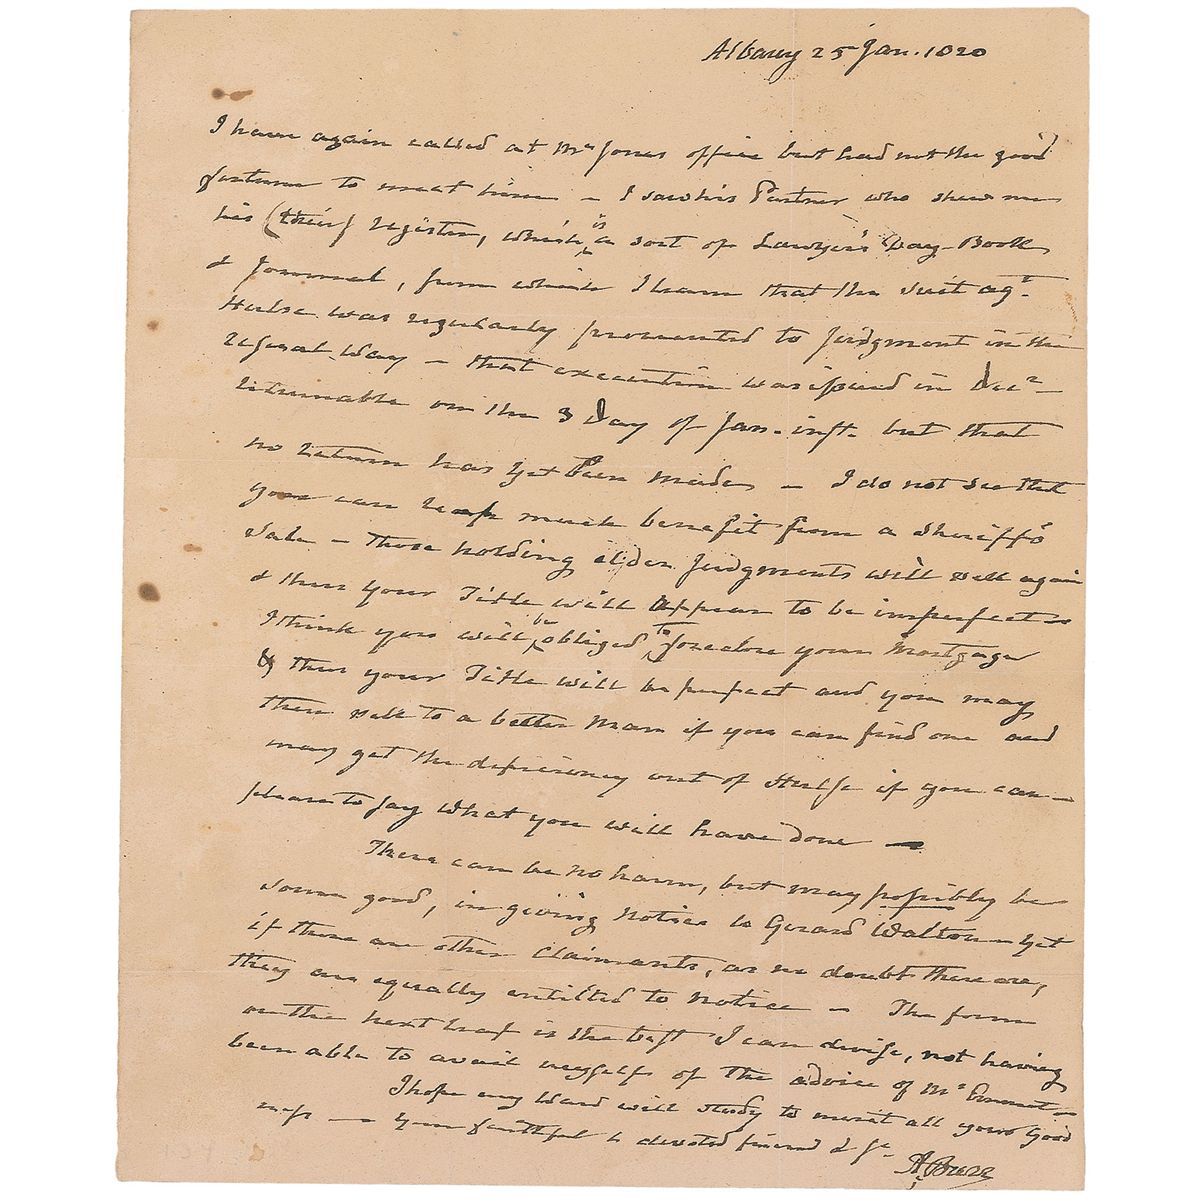 Albany 25 Jan. 1820
I have again called at Mr Jones office but had not the good
fortune to meet him — I saw his Partner who shew me
his (their) register, which is a sort of Lawyer's Day-Book
& Journal, from which I learn that the suit agt.
Hulse was regularly prosecuted to judgment in the
usual way — that execution was issued in Decr
returnable on the 3 Day of Jan. inst. but that
no return has yet been made — I do not see that
you can reap much benefit from a Sheriff's
Sale — those holding elder judgments will sell again
& then your Title will appear to be imperfect —
I think you will be obliged to foreclose your Mortgage
& then your Title will be perfect and you may
then sell to a better man if you can find one and
may get the deficiency out of Hulse if you can —
please to say what you will have done —
There can be no harm, but may possibly be
some good, in giving notice to Gerard Walton — yet
if there are other claimants, as no doubt there are,
they are equally entitled to notice — The form
on the next leaf is the best I can devise, not having
been able to avail myself of the advice of Mr Emmet —
I hope my Ward will study to merit all your good
ness — Your faithful & devoted friend & Sr
A. Burr